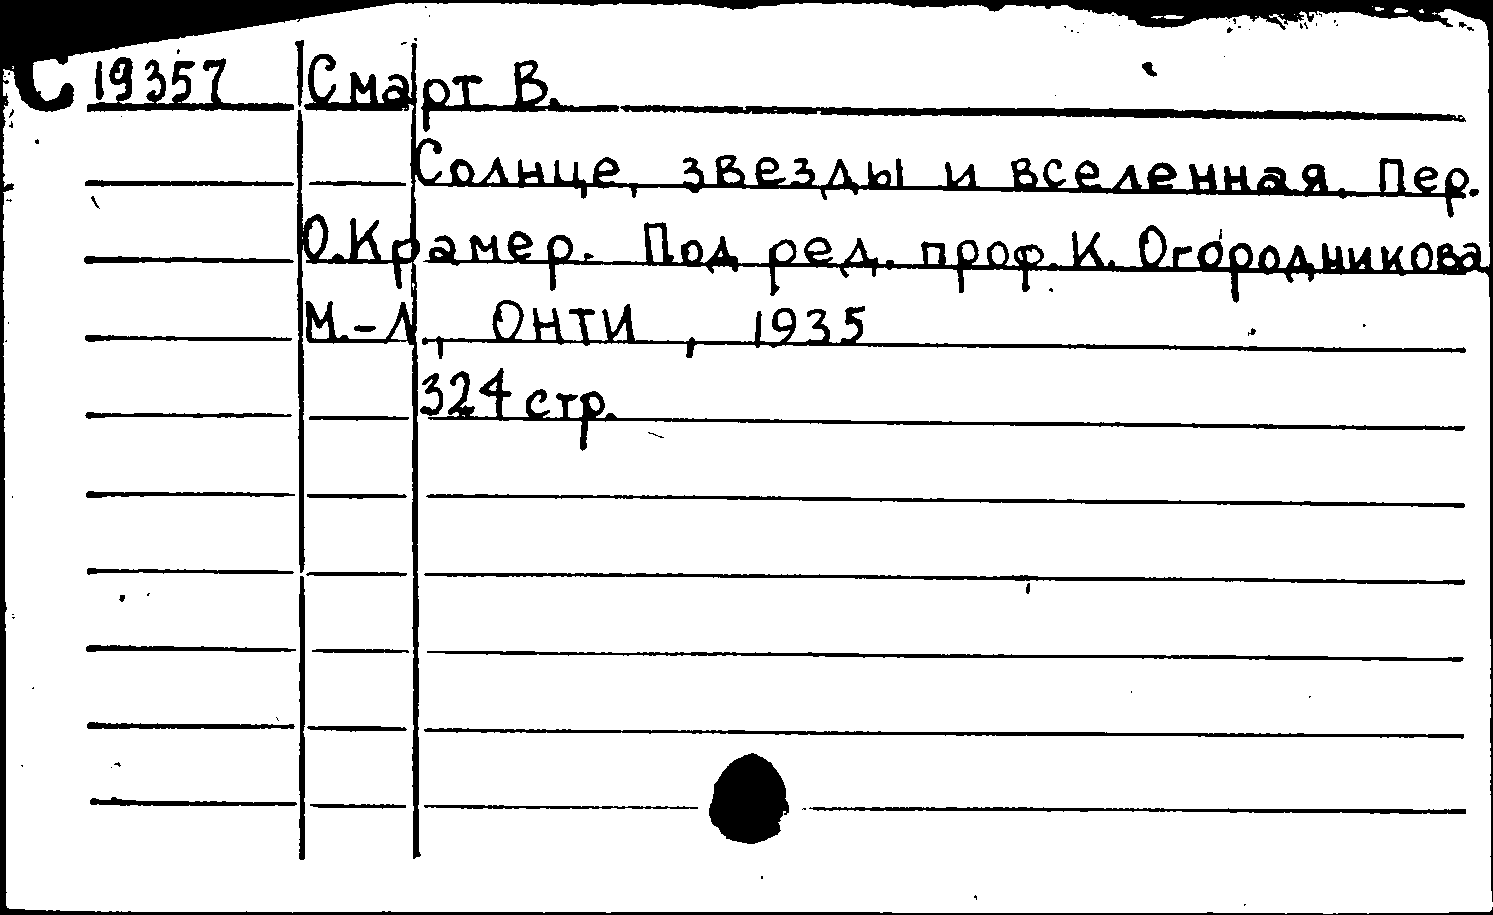 С 19357 Смарт В.
Солнце, звезды и вселенная. Пер.
О.Крамер. Под ред. проф. К. Огородникова
М.-Л., ОНТИ, 1935
324 стр.